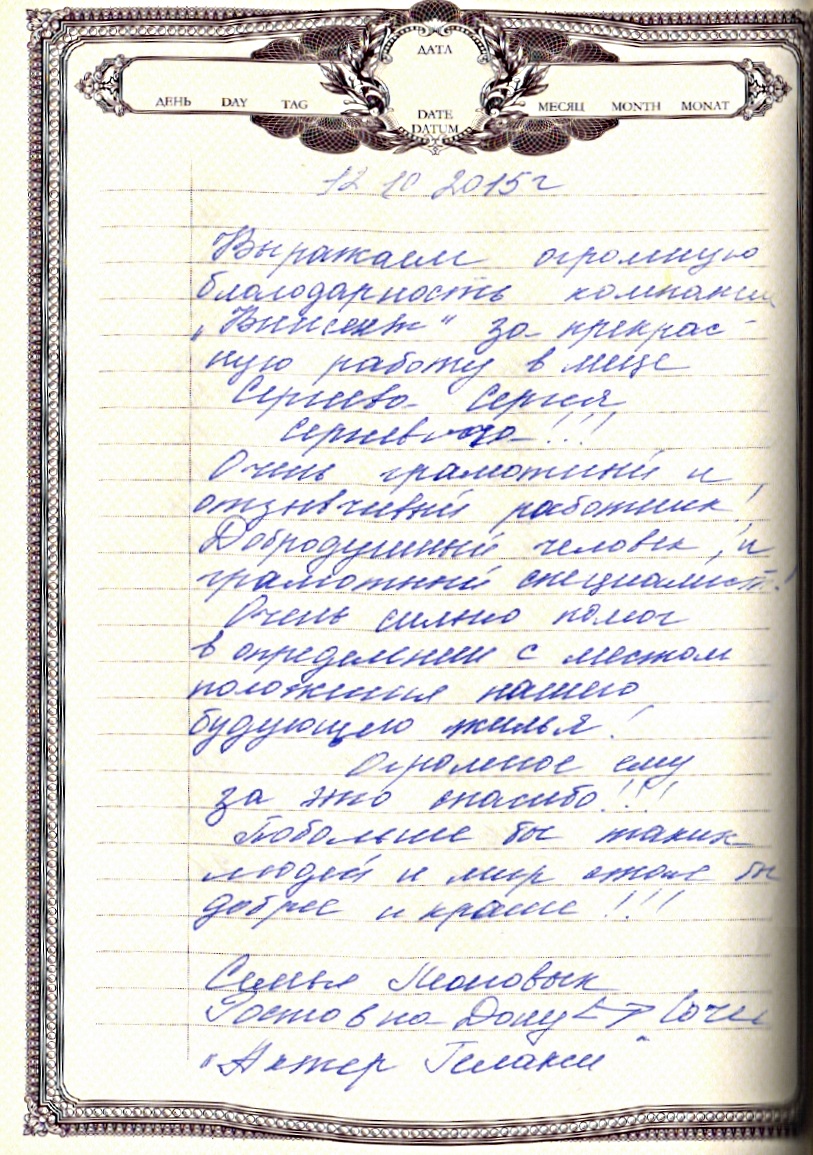 ДАТА
ДЕНЬ DAY TAG
DATE
DATUM
МЕСЯЦ MONTH MONAT
12 10 2015 г
Выражаем огромную
благодарность компании
за прекрас-
ную работу в лице
Сергеева Сергея
Сергеевича!!!
Очень грамотный и
отзывчивый работник!
Добродушный человек, и
грамотный специалист!
Очень сильно помог
в определении с местом
положения нашего
будующего жилья!
Огромное ему
за это спасибо!!!
Побольше бы таких
людей и мир стал бы
добрее и краше!!!
Семья
Ростов на-Дону <-> Сочи
"Актер Гелакси"